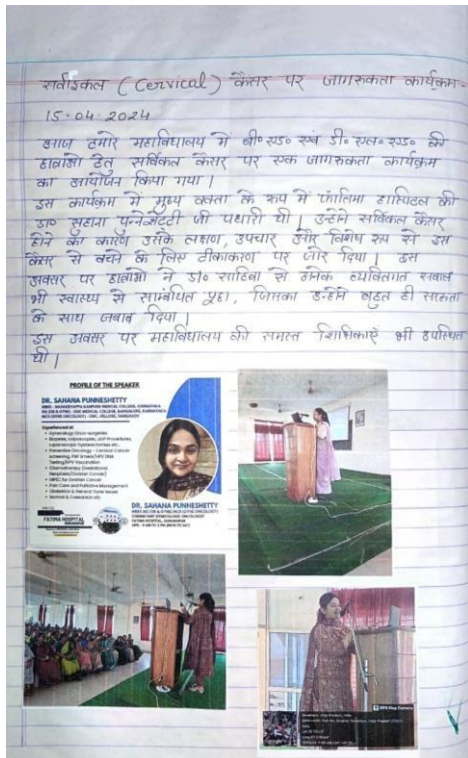 सर्वाइकल (Cervical) कैंसर पर जागरुकता कार्यक्रम -
15-04-2024
आज हमारे महाविद्यालय में बी० एड० एवं डी० एल० एड० की
छात्राओं हेतु सर्विकल कैंसर पर एक जागरुकता कार्यक्रम
का आयोजन किया गया।
इस कार्यक्रम में मुख्य वक्ता के रूप में फातिमा हास्पिटल की
डा० सुहाना पुन्नेसेटटी जी पधारी थी। उन्होंने सर्विकल कैंसर
होने का कारण उसके लक्षण, उपचार और विशेष रूप से इस
कैंसर से बचने के लिए टीकाकरण पर जोर दिया। इस
अवसर पर छात्राओं ने डॉ० साहिबा से अनेक व्यक्तिगत सवाल
भी स्वास्थ्य से सम्बंधित पूछा, जिसका उन्होंने बहुत ही सरलता
के साथ जवाब दिया।
इस अवसर पर महाविद्यालय की समस्त शिक्षिकाऐं भी उपस्थित
थी।
PROFILE OF THE SPEAKER
DR. SAHANA PUNNESHETTY
Experienced at
• Gynecology Onco-surgeries
• Chemotherapy
• HIPEC for Ovarian Cancer
• Pain Care and Palliative Management
FATIMA HOSPITAL
DR. SAHANA PUNNESHETTY
GPS Map Camera